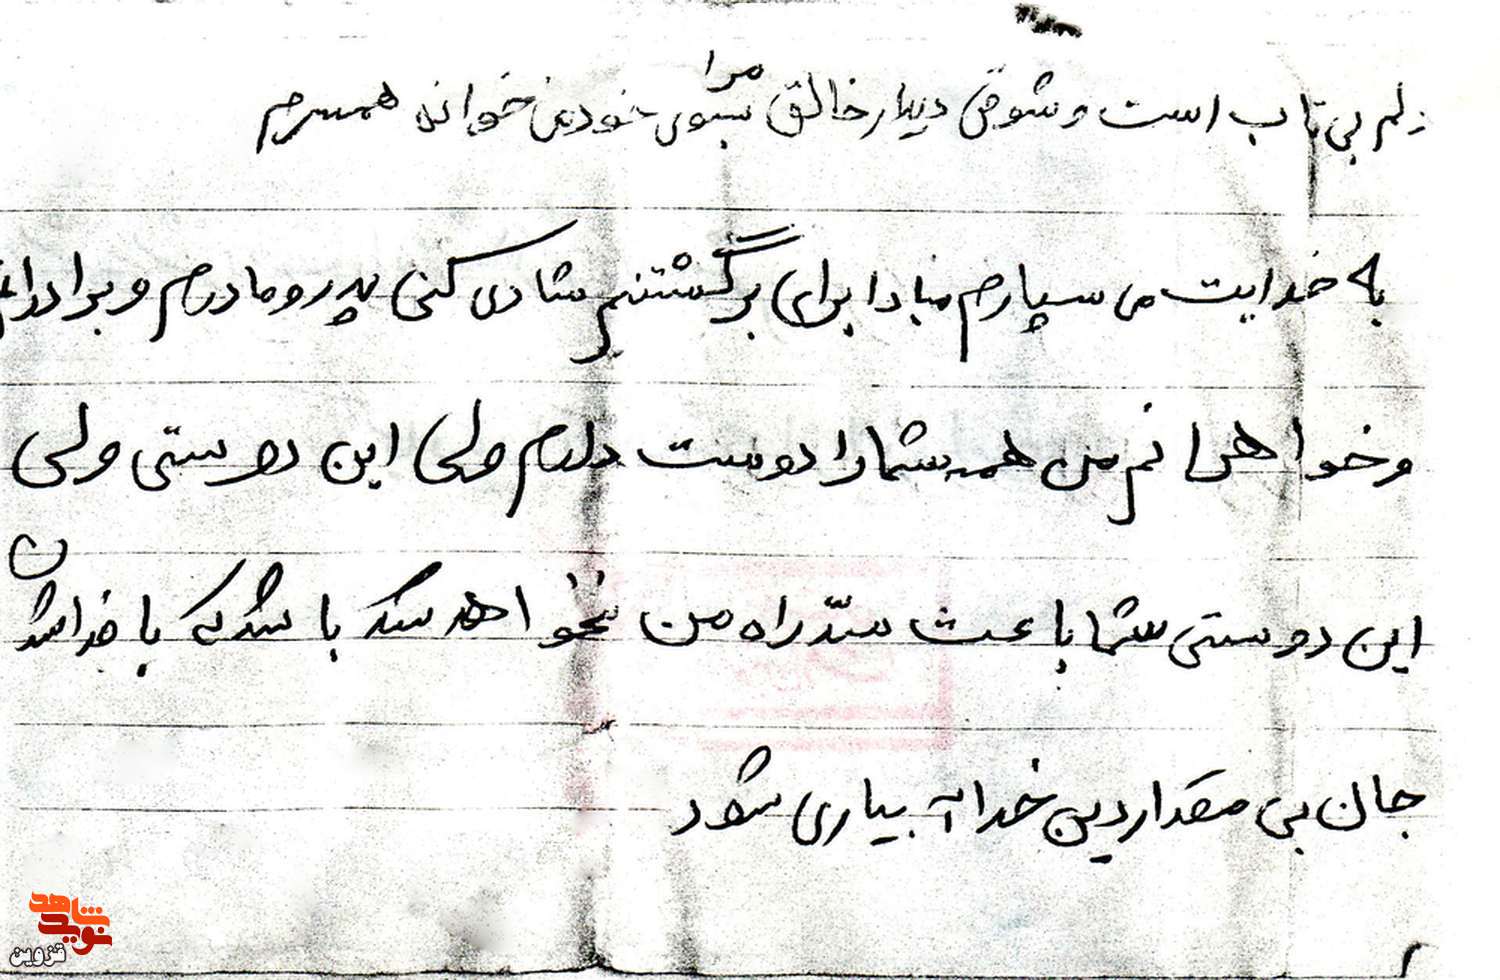 دلم بی تاب است و شوق دیدار خالق مرا بسوی خود می خواند همسرم
به خدایت می سپارم مبادا برای برگشتنم شادی کنی پدر و مادرم و برادرانم
و خواهرانم من همه شما را دوست دارم ولی این دوستی ولی
این دوستی شما باعث سدّ راه من نخواهد شد باشد که با خدا شدن
جان بی مقدار دین خدا بیاری شود
نوید شاهد
قزوین